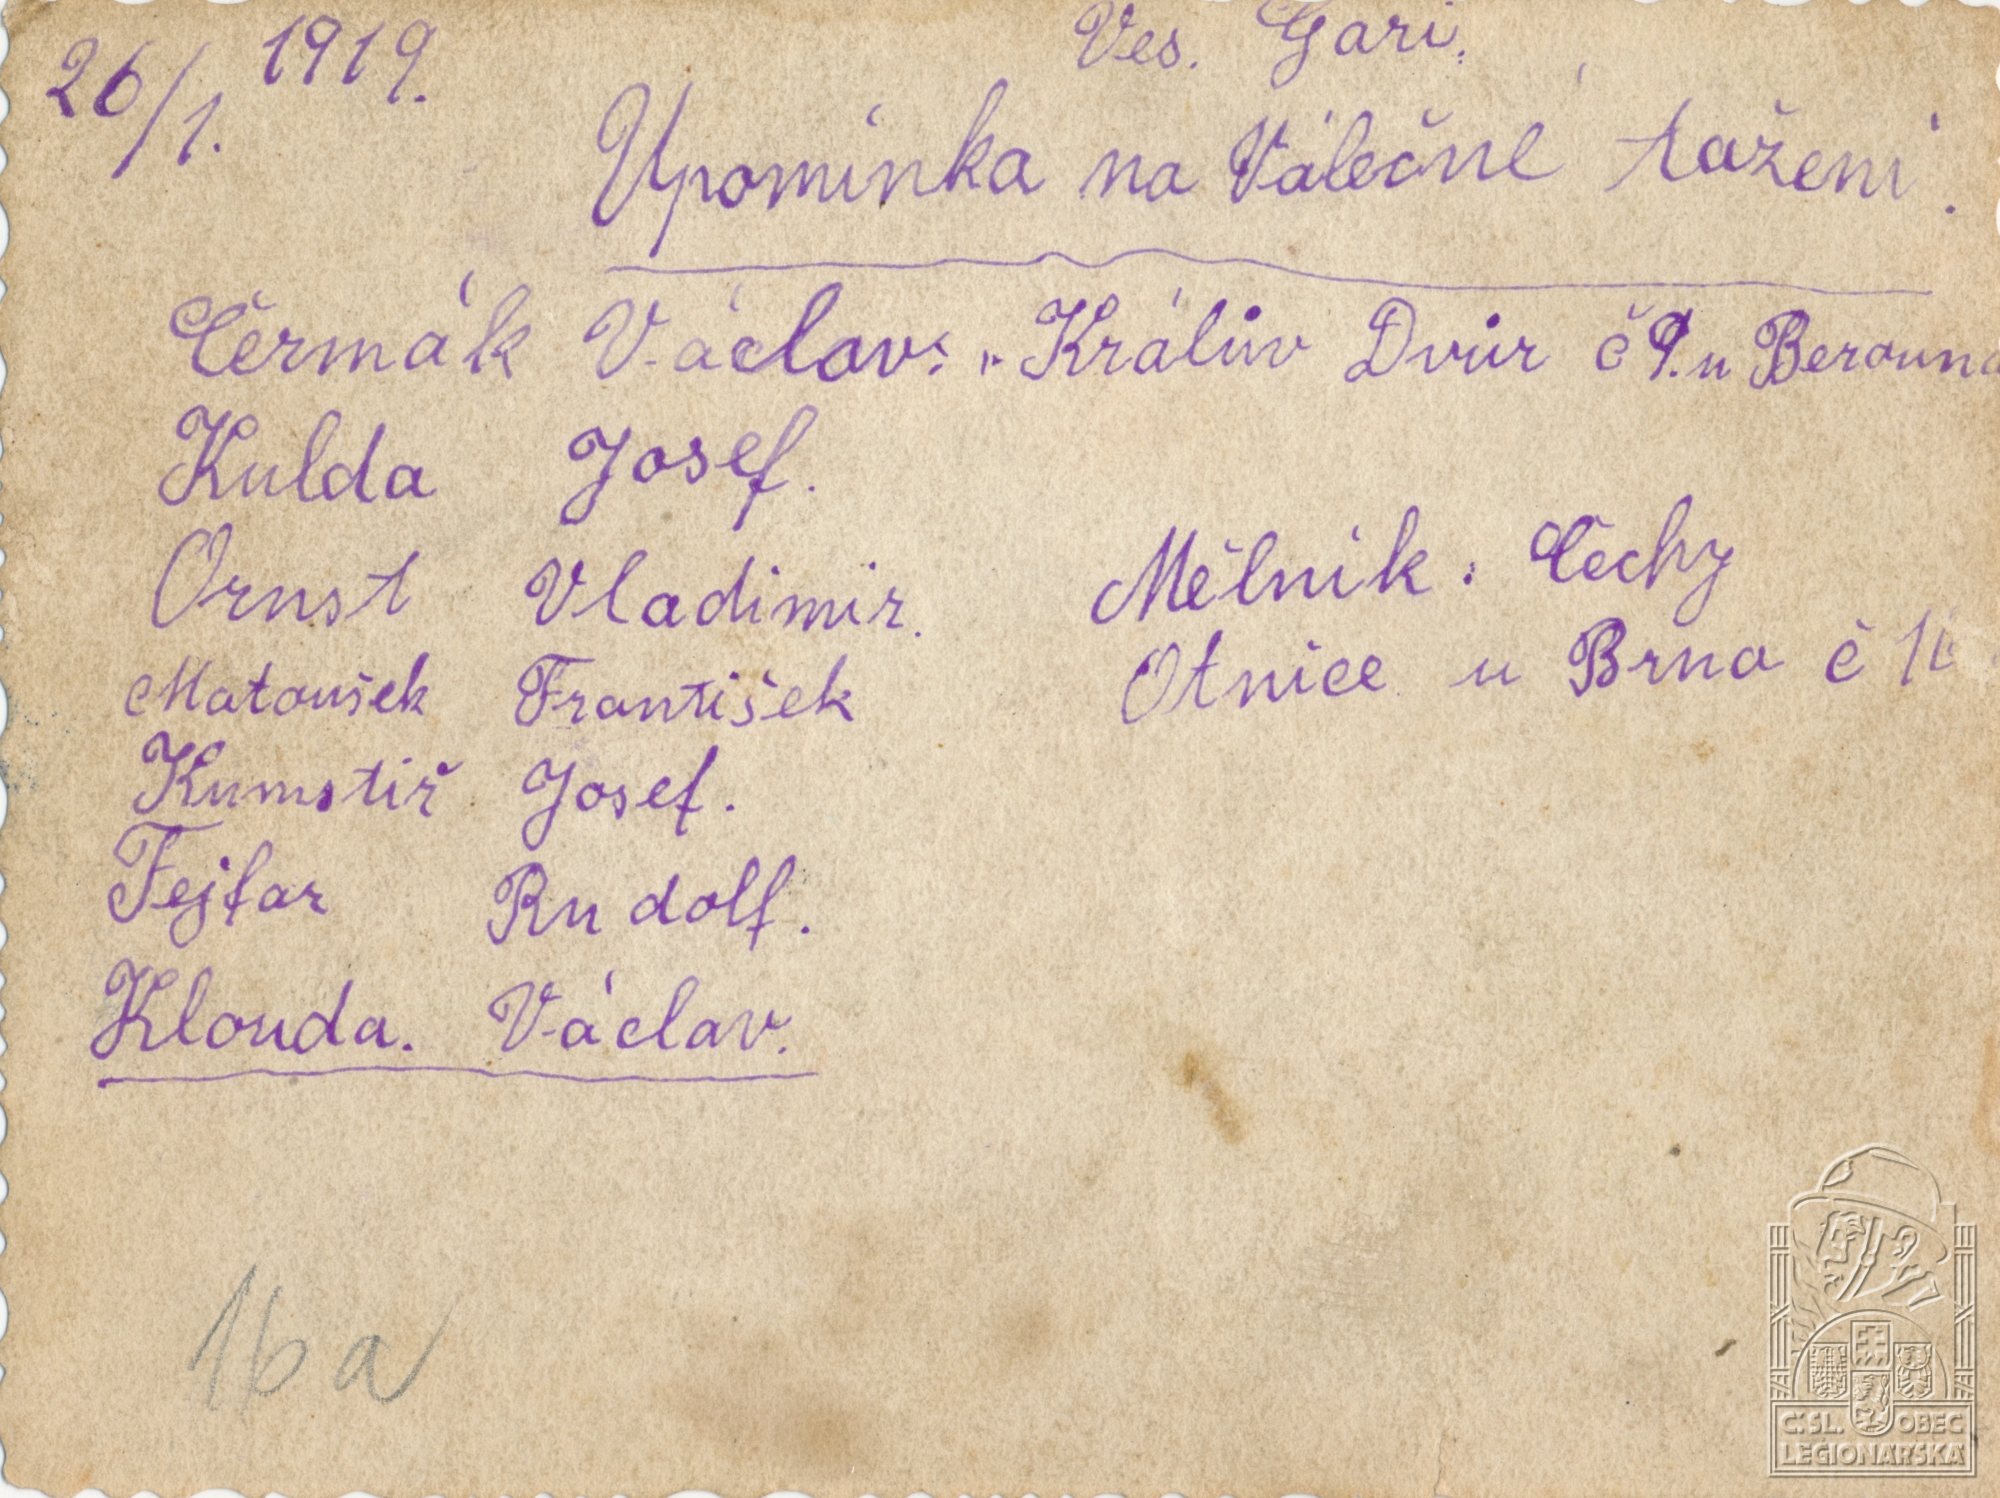 26/1. 1919. Ves. Gari.
Upomínka na Válečné tažení.
Čermák Václav: „Králův Dvůr č 9. u Berouna
Kulda Josef.
Ornst Vladimir. Mělník. Čechy
Matoušek František Otnice u Brna č
Kumstiř Josef.
Fejfar Rudolf.
Klouda. Václav.
16 a
Č.SL. OBEC
LEGIONÁŘSKÁ